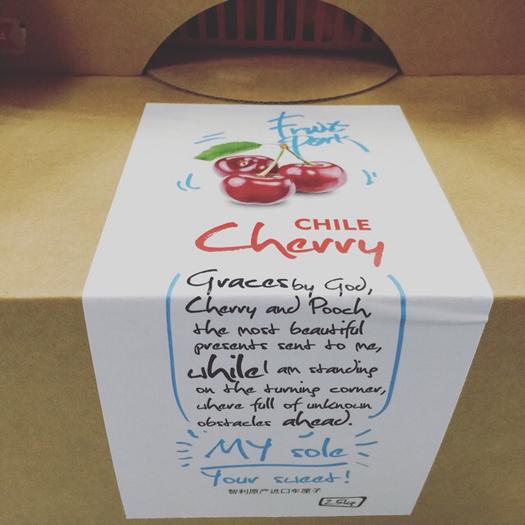 Fruit
Park
CHILE
Cherry
Graces by God,
Cherry and Pooch,
the most beautiful
presents sent to me,
while I am standing
on the turning corner,
where full of unknown
obstacles ahead.
MY sole
Your sweet!
智利原产进口车厘子
2.5kg